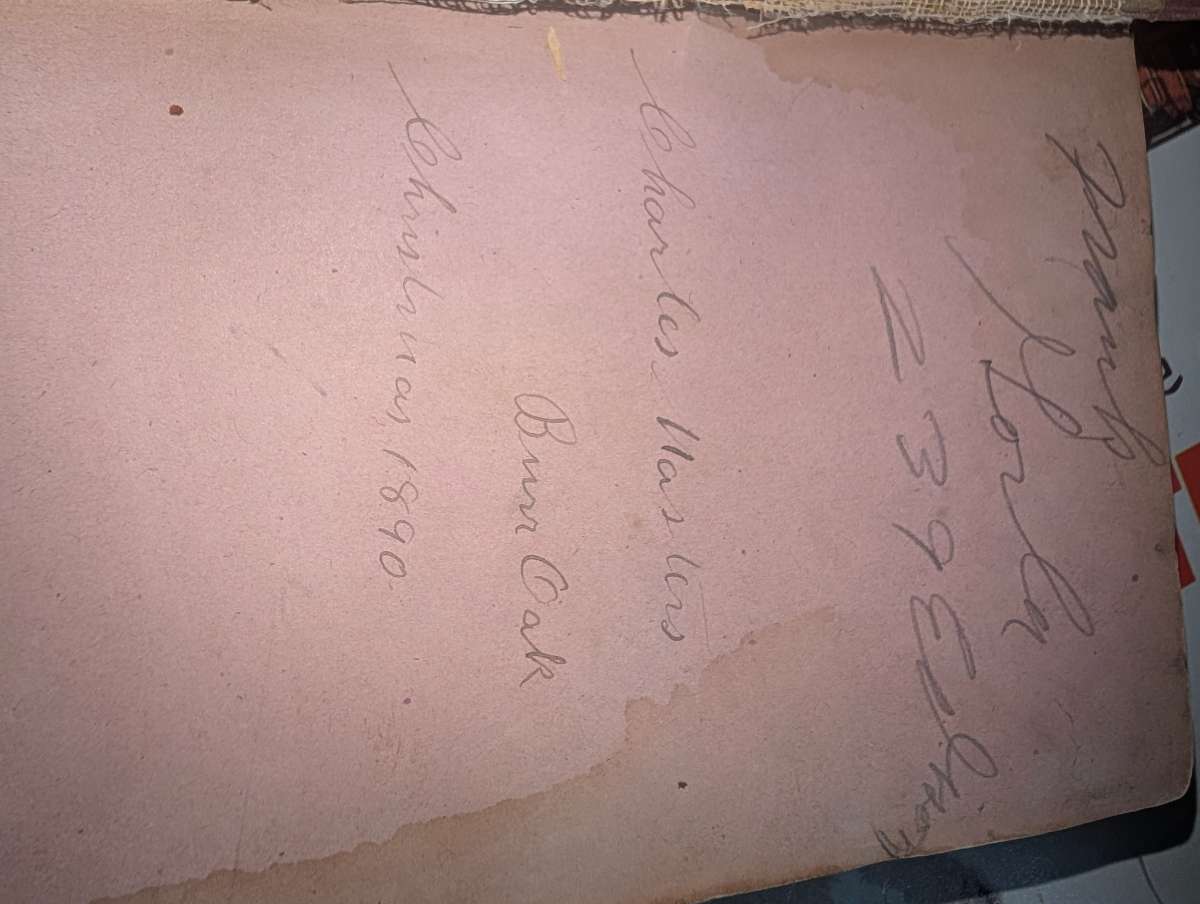 Frank
239
Charles Masters
Burr Oak
Christmas, 1890